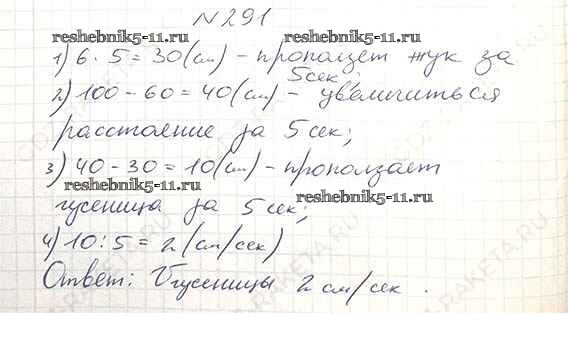 №291
reshebnik5-11.ru reshebnik5-11.ru
1) 6 · 5 = 30 (см) - проползет жук за
5сек;
2) 100 - 60 = 40 (см) - увеличиться
расстояние за 5 сек;
3) 40 - 30 = 10 (см) - проползает
reshebnik5-11.ru reshebnik5-11.ru
гусеница за 5 сек;
4) 10 : 5 = 2 (см/сек)
Ответ: Vгусеницы 2 см/сек.